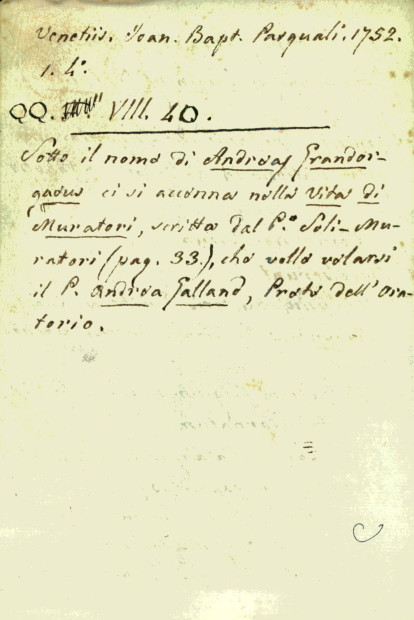 Venetiis. Joan. Bapt. Pasquali. 1752.
1. 4°.
QQ. VIII. 40.
Sotto il nome di Andreas Grandor-
gaeus ci si accenna nella Vita di
Muratori, scritta dal P.e Soli-Mu-
ratori (pag. 33.), che volle velarsi
il P. Andrea Galland, Prete dell'Ora-
torio.